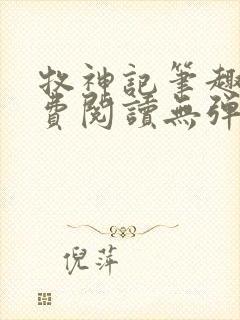 牧神記筆趣
費閱讀無彈
倪萍